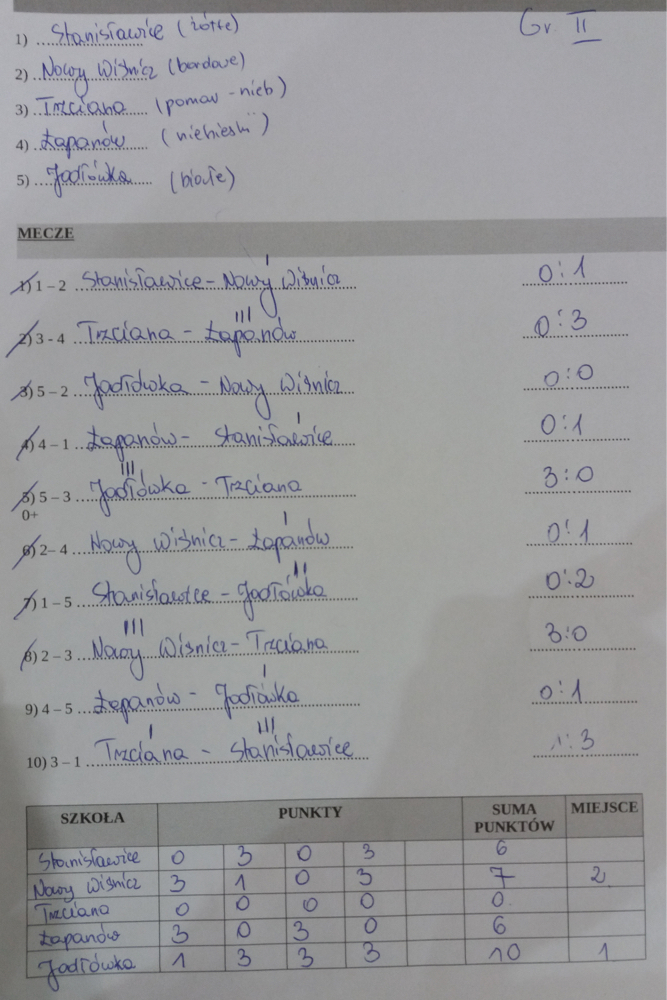 1) Stanisławice (żółte) Gr II
2) Nowy Wiśnicz (bordowe)
3) Trzciana (pomar - nieb)
4) Łapanów (niebieski)
5) Jodłówka (białe)
MECZE
1) 1 – 2 Stanisławice - Nowy Wiśnicz 0:1
2) 3 - 4 Trzciana - Łapanów 0:3
3) 5 – 2 Jodłówka - Nowy Wiśnicz 0:0
4) 4 – 1 Łapanów - Stanisławice 0:1
5) 5 – 3 Jodłówka - Trzciana 3:0
0+
6) 2– 4 Nowy Wiśnicz - Łapanów 0:1
7) 1 – 5 Stanisławice - Jodłówka 0:2
8) 2 – 3 Nowy Wiśnicz - Trzciana 3:0
9) 4 – 5 Łapanów - Jodłówka 0:1
10) 3 – 1 Trzciana - Stanisławice 1:3
SZKOŁA PUNKTY SUMA PUNKTÓW MIEJSCE
Stanisławice 0 3 0 3 6
Nowy Wiśnicz 3 1 0 3 7 2
Trzciana 0 0 0 0 0
Łapanów 3 0 3 0 6
Jodłówka 1 3 3 3 10 1